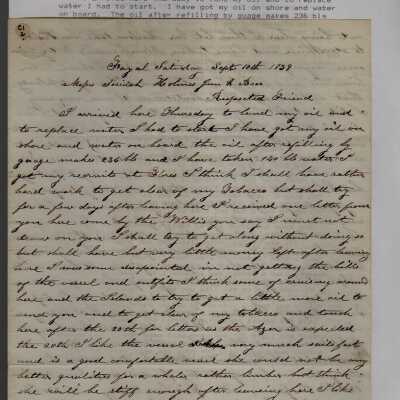 water I had to start. I have got my oil on shore and water
on board. The oil after refilling by guage makes 236 bls
Fayal Saturday Sept 10th 1859
Josiah Holmes Jun & Bro
Respected Friend
I arrived here Thursday to land my oil and
to replace water I had to start I have got my oil on
shore and water on board the oil after refilling by
guage makes 236 bls and I have taken 140 bls water I
got my recruits at Flores I think I shall have rather
hard work to get clear of my Tobacco but shall try
for a few days after leaving here I received one letter from
you here come by the Willis you say I must not
draw on you I shall try to get along without doing so
but shall have but very little money left after leaving
here I was some disapointed in not getting the bills
of the vessel and outfits I think some of cruising around
here and the Islands to try to get a little more oil to
send you and to get clear of my tobacco and touch
here after the 20th for letters as the Azor is expected
the 20th I like the vessel very much sails fast
and is a good comfortable vessel she could not be any
better qualities for a whaler rather limber but think
she will be stiff enough after leaving here I like